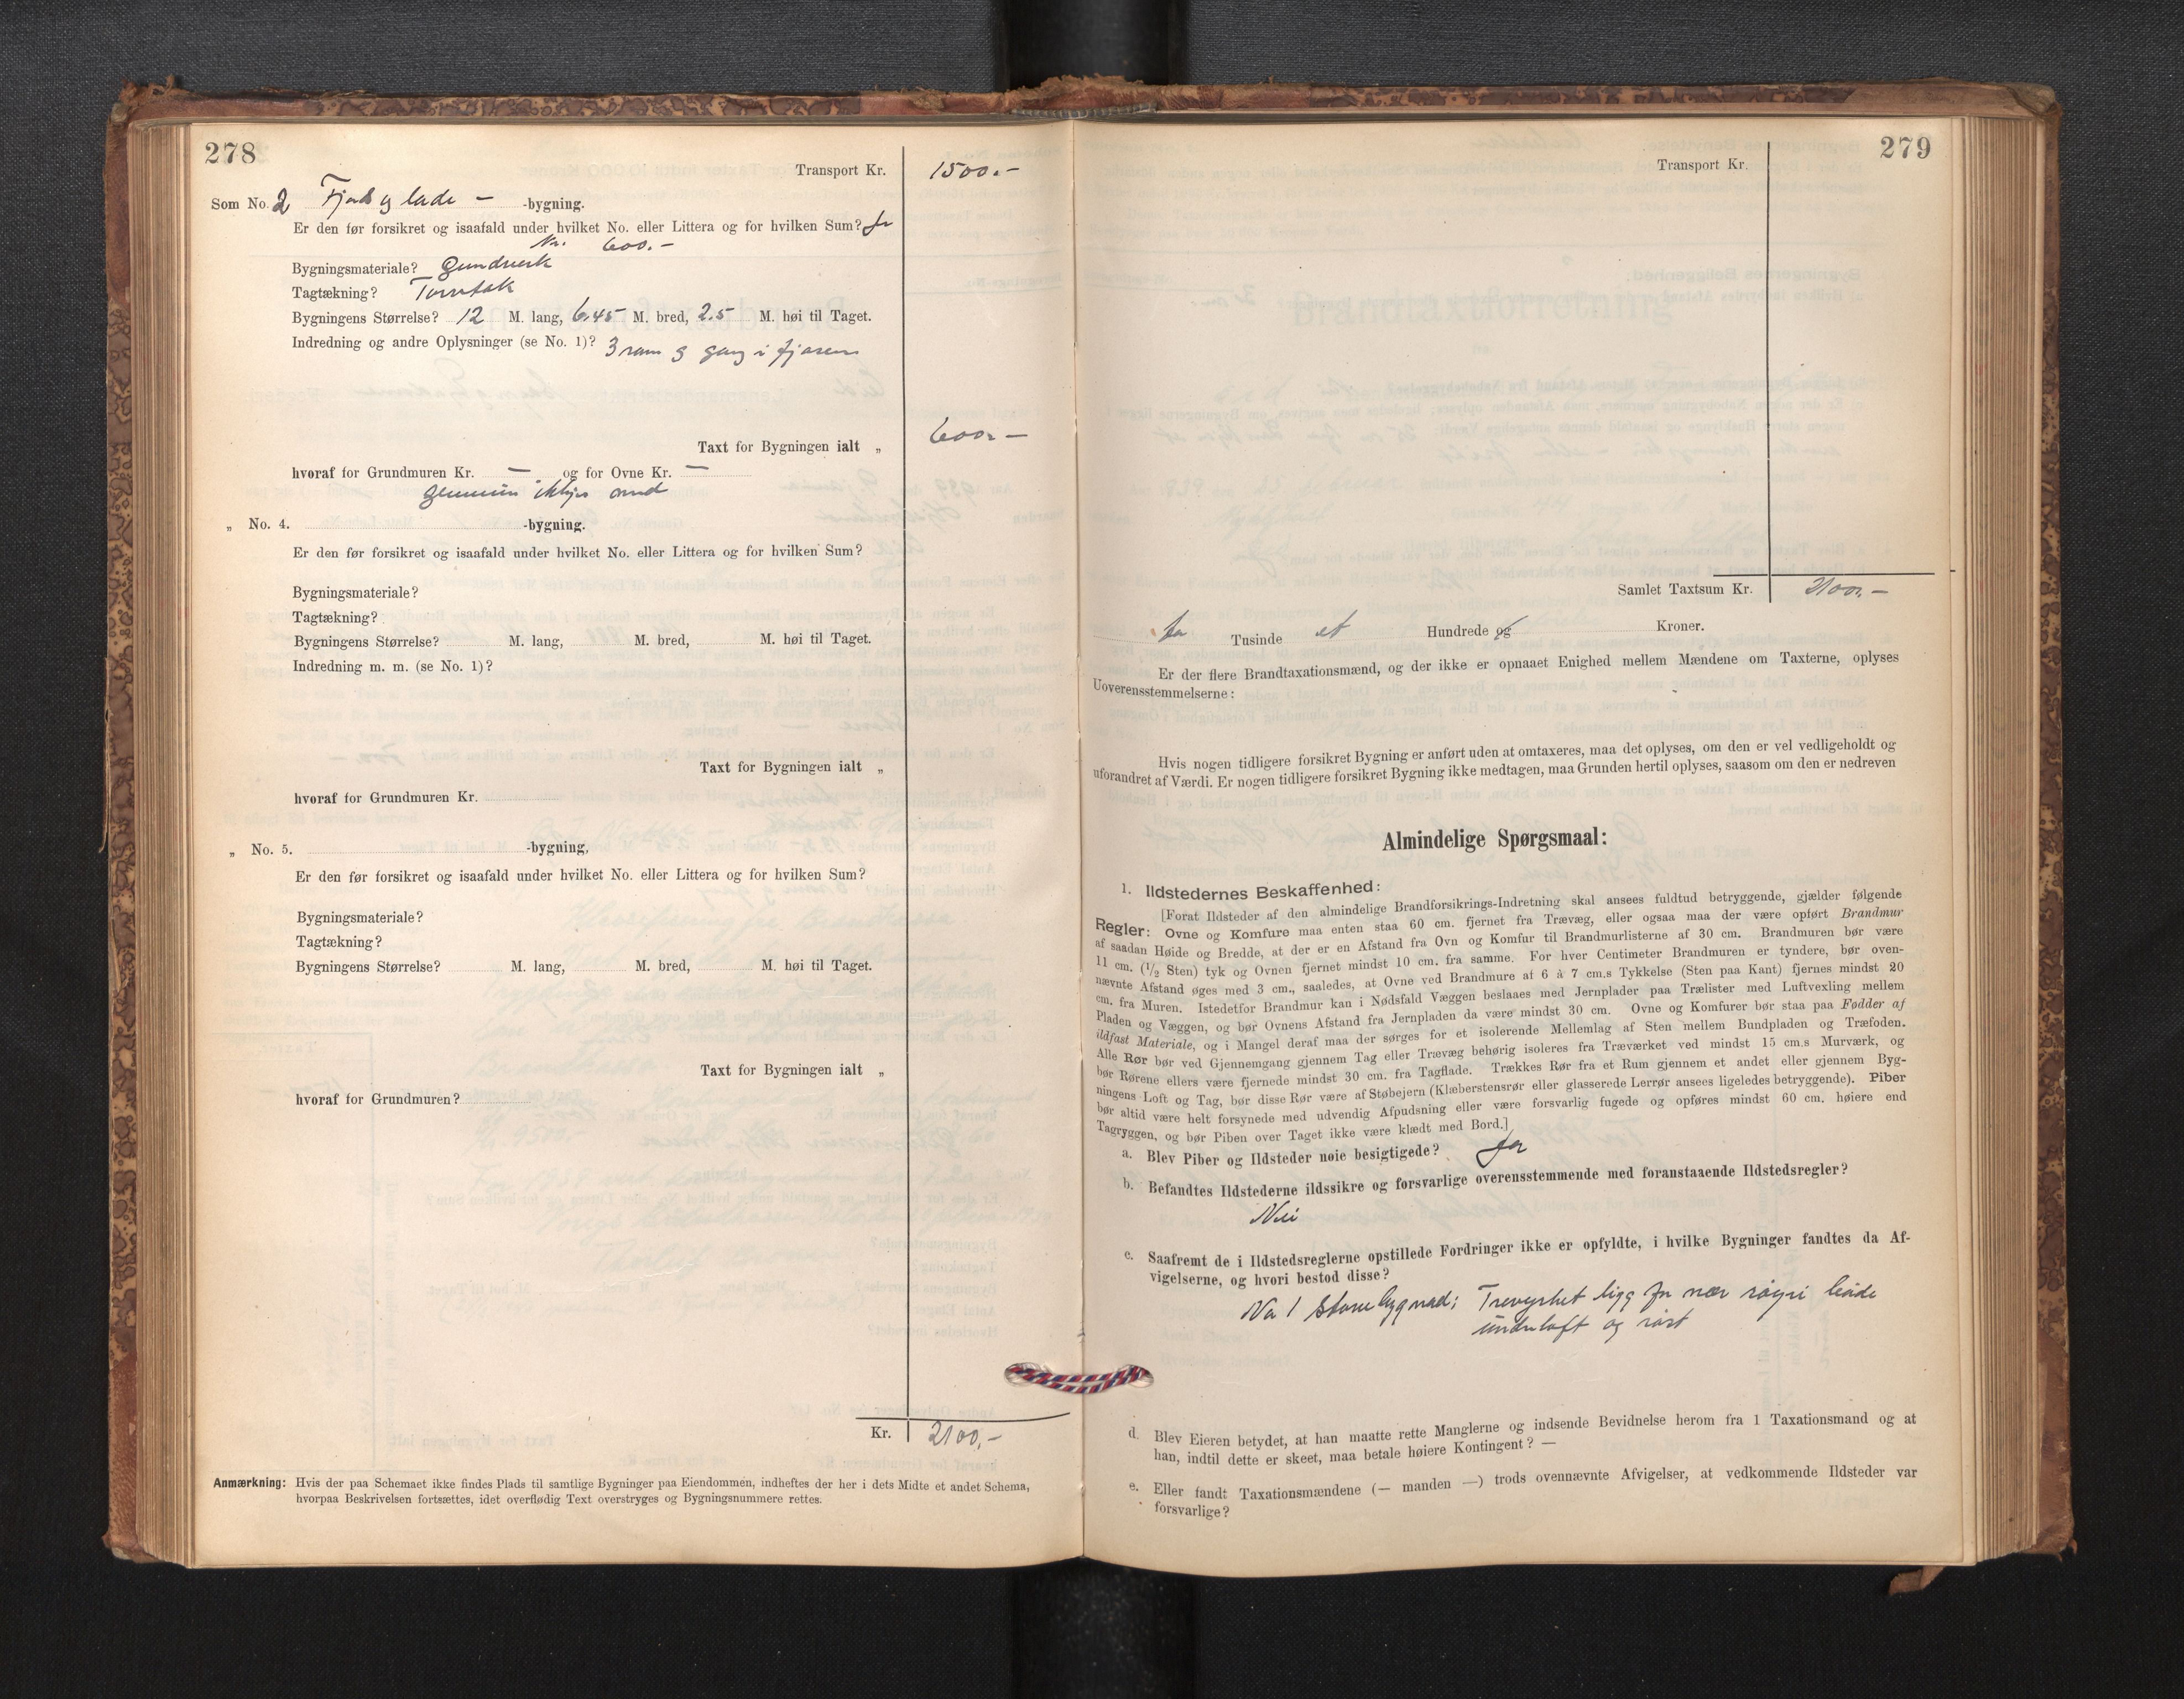 278
Transport Kr. 1500.-
Som No. 2 Fjøs og lade - -bygning.
Er den før forsikret og isaafald under hvilket No. eller Littera og for hvilken Sum? Ja
Nr. 600.-
Bygningsmateriale? Grindverk
Tagtækning? Torvtak
Bygningens Størrelse? 12 M. lang, 6.45 M. bred, 2.5 M. høi til Taget.
Indredning og andre Oplysninger (se No. 1)? 3 rom og gang i fjosen
Taxt for Bygningen ialt „ 600.-
hvoraf for Grundmuren Kr. — og for Ovne Kr. —
ikkje
„ No. 4. -bygning.
Er den før forsikret og isaafald under hvilket No. eller Littera og for hvilken Sum?
Bygningsmateriale?
Tagtækning?
Bygningens Størrelse? M. lang, M. bred, M. høi til Taget.
Indredning m. m. (se No. 1)?
Taxt for Bygningen ialt „
hvoraf for Grundmuren Kr.
„ No. 5. -bygning.
Er den før forsikret og isaafald under hvilket No. eller Littera og for hvilken Sum?
Bygningsmateriale?
Tagtækning?
Bygningens Størrelse? M. lang, M. bred, M. høi til Taget.
Taxt for Bygningen ialt „
hvoraf for Grundmuren?
Kr. 2100.-
Anmærkning: Hvis der paa Schemaet ikke findes Plads til samtlige Bygninger paa Eiendommen, indheftes der her i dets Midte et andet Schema,
hvorpaa Beskrivelsen fortsættes, idet overflødig Text overstryges og Bygningsnummere rettes.
279
Transport Kr.
Samlet Taxtsum Kr. 2100.-
to Tusinde et Hundrede og Kroner.
Er der flere Brandtaxationsmænd, og der ikke er opnaaet Enighed mellem Mændene om Taxterne, oplyses
Uoverensstemmelserne:
Hvis nogen tidligere forsikret Bygning er anført uden at omtaxeres, maa det oplyses, om den er vel vedligeholdt og
uforandret af Værdi. Er nogen tidligere forsikret Bygning ikke medtagen, maa Grunden hertil oplyses, saasom om den er nedreven
Almindelige Spørgsmaal:
1. Ildstedernes Beskaffenhed:
[Forat Ildsteder af den almindelige Brandforsikrings-Indretning skal ansees fuldtud betryggende, gjælder følgende
Regler: Ovne og Komfure maa enten staa 60 cm. fjernet fra Trævæg, eller ogsaa maa der være opført Brandmur
af saadan Høide og Bredde, at der er en Afstand fra Ovn og Komfur til Brandmurlisterne af 30 cm. Brandmuren bør være
11 cm. (1/2 Sten) tyk og Ovnen fjernet mindst 10 cm. fra samme. For hver Centimeter Brandmuren er tyndere, bør oven-
nævnte Afstand øges med 3 cm., saaledes, at Ovne ved Brandmure af 6 à 7 cm.s Tykkelse (Sten paa Kant) fjernes mindst 20
cm. fra Muren. Istedetfor Brandmur kan i Nødsfald Væggen beslaaes med Jernplader paa Trælister med Luftvexling mellem
Pladen og Væggen, og bør Ovnens Afstand fra Jernpladen da være mindst 30 cm. Ovne og Komfurer bør staa paa Fødder af
ildfast Materiale, og i Mangel deraf maa der sørges for et isolerende Mellemlag af Sten mellem Bundpladen og Træfoden.
Alle Rør bør ved Gjennemgang gjennem Tag eller Trævæg behørig isoleres fra Træværket ved mindst 15 cm.s Murværk, og
bør Rørene ellers være fjernede mindst 30 cm. fra Tagflade. Trækkes Rør fra et Rum gjennem et andet eller gjennem Byg-
ningens Loft og Tag, bør disse Rør være af Støbejern (Klæberstensrør eller glasserede Lerrør ansees ligeledes betryggende). Piber
bør altid være helt forsynede med udvendig Afpudsning eller være forsvarlig fugede og opføres mindst 60 cm. høiere end
Tagryggen, og bør Piben over Taget ikke være klædt med Bord.]
a. Blev Piber og Ildsteder nøie besigtigede? Ja
b. Befandtes Ildstederne ildssikre og forsvarlige overensstemmende med foranstaaende Ildstedsregler?
Nei
c. Saafremt de i Ildstedsreglerne opstillede Fordringer ikke er opfyldte, i hvilke Bygninger fandtes da Af-
vigelserne, og hvori bestod disse?
No 1 Stovebygnad; Treverket ligg for nær røyri både
under loft og røst
d. Blev Eieren betydet, at han maatte rette Manglerne og indsende Bevidnelse herom fra 1 Taxationsmand og at
han, indtil dette er skeet, maa betale høiere Kontingent? —
e. Eller fandt Taxationsmændene (— manden —) trods ovennævnte Afvigelser, at vedkommende Ildsteder var
forsvarlige?